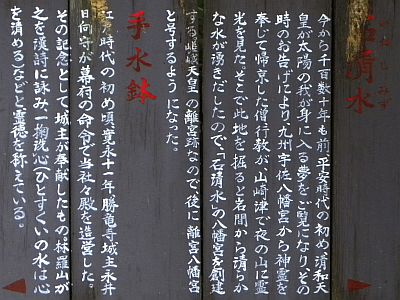 石清水
いわしみず
今から千百数十年も前、平安時代の初め、清和天
皇が太陽の我が身に入る夢をご覧になり、その
時のお告げにより、九州宇佐八幡宮から神霊を
奉じて帰京した僧行教が山崎津で夜の山に霊
光を見た。そこで此地を掘ると岩間から清らか
な水が湧きだしたので、「石清水」の八幡宮を創建
する嵯峨天皇の離宮跡なので、後に離宮八幡宮
と号するようになった。
手水鉢
江戸時代の初め頃寛永十一年勝竜寺城主永井
日向守が幕府の命令で当社々殿を造営した。
その記念として、城主が奉献したもの。林羅山が
之を漢詩に詠み一掬洗心(ひとすくいの水は心
を清める)などと霊徳を称えている。